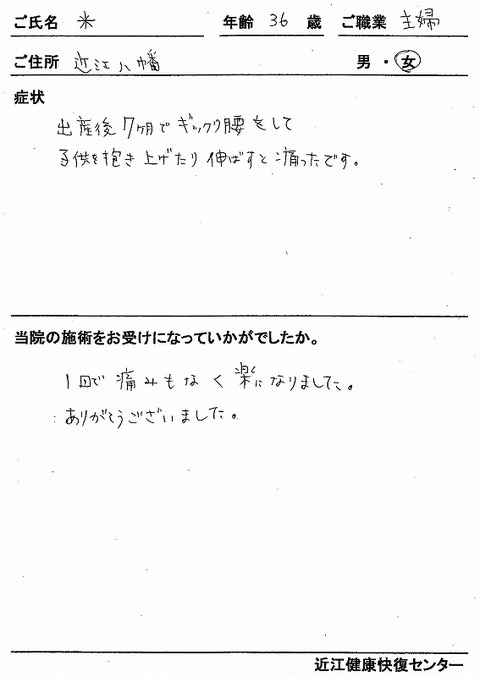 ご氏名 米 年齢 36 歳 ご職業 主婦
ご住所 近江八幡 男・女
症状
出産後7ヶ月でギックリ腰をして
子供を抱き上げたり伸ばすと痛ったです。
当院の施術をお受けになっていかがでしたか。
1回で痛みもなく楽になりました。
ありがとうございました。
近江健康快復センター